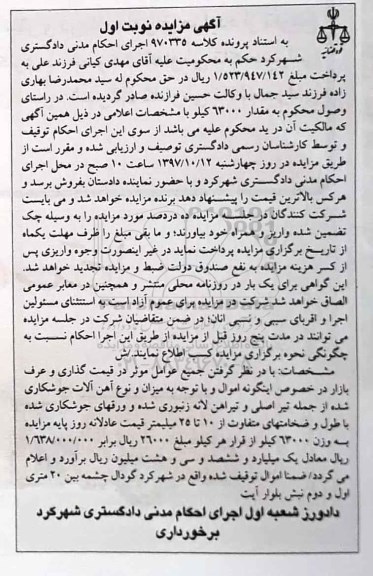 آگهی مزایده نوبت اول
به استناد پرونده کلاسه ۹۷۰۳۳۵ اجرای احکام مدنی دادگستری
شهرکرد حکم به محکومیت علیه آقای مهدی کیانی فرزند علی به
پرداخت مبلغ ۱/۵۲۳/۹۴۷/۱۴۲ ریال در حق محکوم له سید محمدرضا بهاری
زاده فرزند سید جمال با وکالت حسین فرازنده صادر گردیده است. در راستای
وصول محکوم به مقدار ۶۳۰۰۰ کیلو با مشخصات اعلامی در ذیل همین آگهی
که مالکیت آن در ید محکوم علیه می باشد از سوی این اجرای احکام توقیف
و توسط کارشناسان رسمی دادگستری توصیف و ارزیابی شده و مقرر است از
طریق مزایده در روز چهارشنبه ۱۳۹۷/۱۰/۱۲ ساعت ۱۰ صبح در محل اجرای
احکام مدنی دادگستری شهرکرد و با حضور نماینده دادستان بفروش برسد و
هرکس بالاترین قیمت را پیشنهاد دهد برنده مزایده خواهد شد و می بایست
شرکت کنندگان در جلسه مزایده ده درصد مورد مزایده را به وسیله چک
تضمین شده واریز و همراه خود بیاورند؛ و ما بقی مبلغ را ظرف مهلت یکماه
از تاریخ برگزاری مزایده پرداخت نماید در غیر اینصورت وجوه واریزی پس
از کسر هزینه مزایده به نفع صندوق دولت ضبط و مزایده تجدید خواهد شد.
این گواهی برای یک بار در روزنامه محلی منتشر و همچنین در معابر عمومی
الصاق خواهد شد شرکت در مزایده برای عموم آزاد است به استثنای مسئولین
اجرا و اقربای سببی و نسبی آنان؛ در ضمن متقاضیان شرکت در جلسه مزایده
می توانند در مدت پنج روز قبل از مزایده از طریق این اجرا احکام نسبت به
چگونگی نحوه برگزاری مزایده کسب اطلاع نمایند.ش
مشخصات: با در نظر گرفتن جمیع عوامل موثر در قیمت گذاری و عرف
بازار در خصوص اینگونه اموال و با توجه به میزان و نوع آهن آلات جوشکاری
شده از جمله تیر اصلی و تیرآهن لانه زنبوری شده و ورقهای جوشکاری شده
با طول و ضخامتهای متفاوت از ۱۰ تا ۲۵ میلیمتر قیمت عادلانه روز پایه مزایده
به وزن ۶۳۰۰۰ کیلو از قرار هر کیلو مبلغ ۲۶۰۰۰ ریال برابر ۱/۶۳۸/۰۰۰/۰۰۰
ریال معادل یک میلیارد و ششصد و سی و هشت میلیون ریال برآورد و اعلام
می گردد/ ضمنا اموال توقیف شده واقع در شهرکرد گودال چشمه بین ۲۰ متری
اول و دوم نبش بلوار آیت
دادورز شعبه اول اجرای احکام مدنی دادگستری شهرکرد
برخورداری